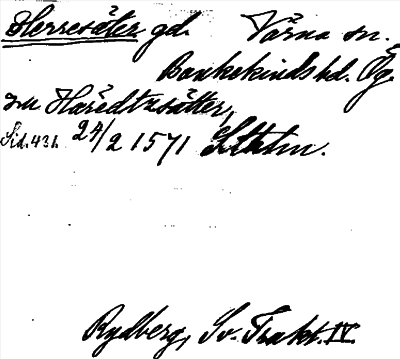 Herresäter gd. Värna sn.
Bankekinds hd. Ög.
zu Häredtzsätter,
Sid. 431. 24/2 1571 Sthm.
Rydberg, Sv. Trakt. IV.